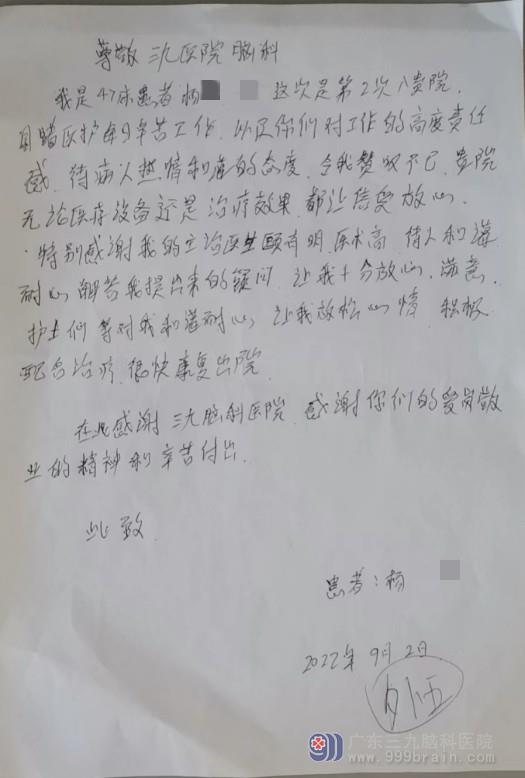 尊敬三九医院脑科
我是47床患者杨 这次是第2次入贵院.
目睹医护每日辛苦工作, 以及你们对工作的高度责任
感, 待病人热情和蔼的态度, 令我赞叹不已, 贵院
无论医疗设备还是治疗效果, 都让信爱放心.
特别感谢我的主治医生颐有明, 医术高, 待人和蔼
耐心解答我提出来的疑问, 让我十分放心, 满意.
护士们等对我和蔼耐心, 让我放松心情, 积极
配合治疗, 很快康复出院.
在此感谢三九脑科医院, 感谢你们的爱岗敬
业的精神和辛苦付出.
此致
患者: 杨
2022年9月2日
广东三九脑科医院
www.999brain.com